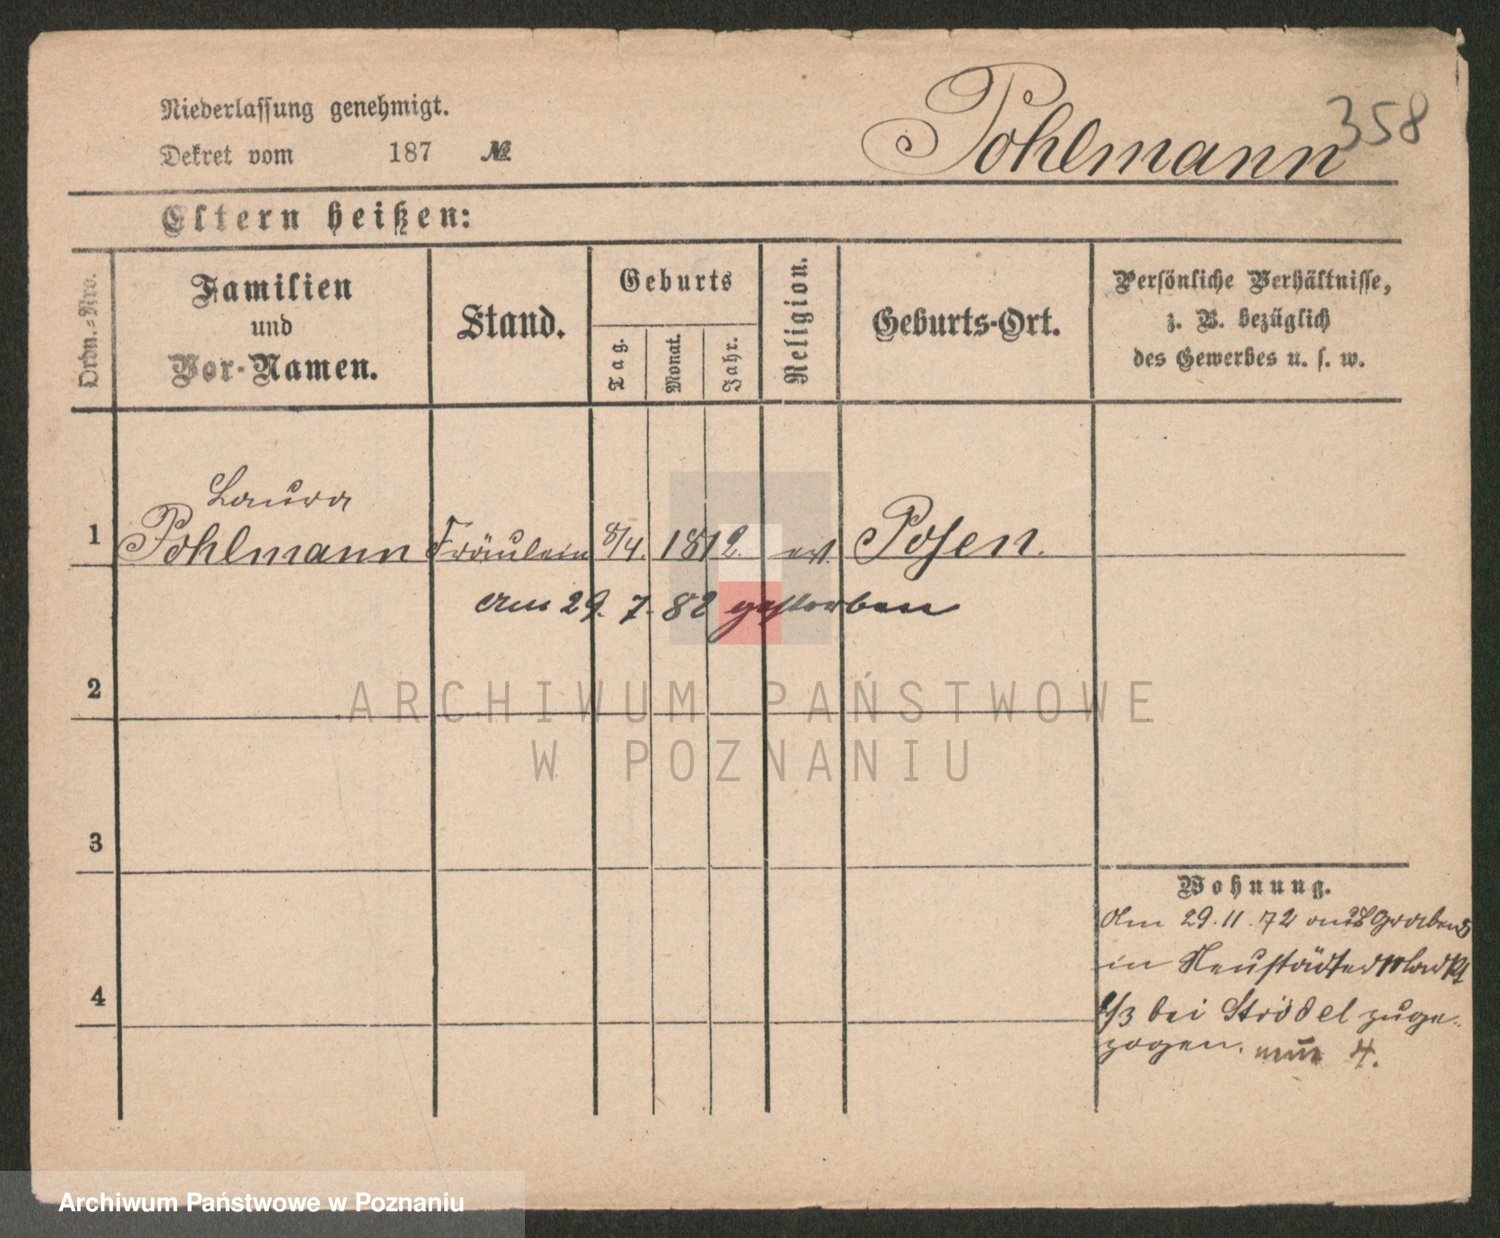 358
Niederlassung genehmigt.
Pohlmann
Dekret vom 187 №
Eltern heißen:
Ordn.-Nro.
Familien und Vor-Namen.
Stand.
Geburts
Tag.
Monat.
Jahr.
Religion.
Geburts-Ort.
Persönliche Verhältnisse,
z. B. bezüglich
des Gewerbes u. s. w.
Laura
1 Pohlmann Fräulein 8/4. 1812. Posen.
am 29. 7. 82 gestorben
2
ARCHIWUM PAŃSTWOWE
W POZNANIU
3
Wohnung.
Am 29.11.72 Graben
in Neustädter Markt
bei Strödel zuge-
4
zogen. 4.
Archiwum Państwowe w Poznaniu